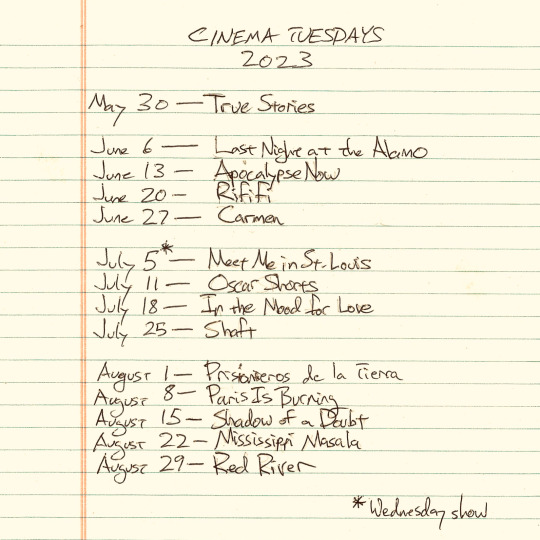 CINEMA TUESDAYS
2023
May 30 — True Stories
June 6 — Last Night at the Alamo
June 13 — Apocalypse Now
June 20 — Rififi
June 27 — Carmen
July 5* — Meet Me in St. Louis
July 11 — Oscar Shorts
July 18 — In the Mood for Love
July 25 — Shaft
August 1 — Prisioneros de la Tierra
August 8 — Paris Is Burning
August 15 — Shadow of a Doubt
August 22 — Mississippi Masala
August 29 — Red River
* Wednesday show